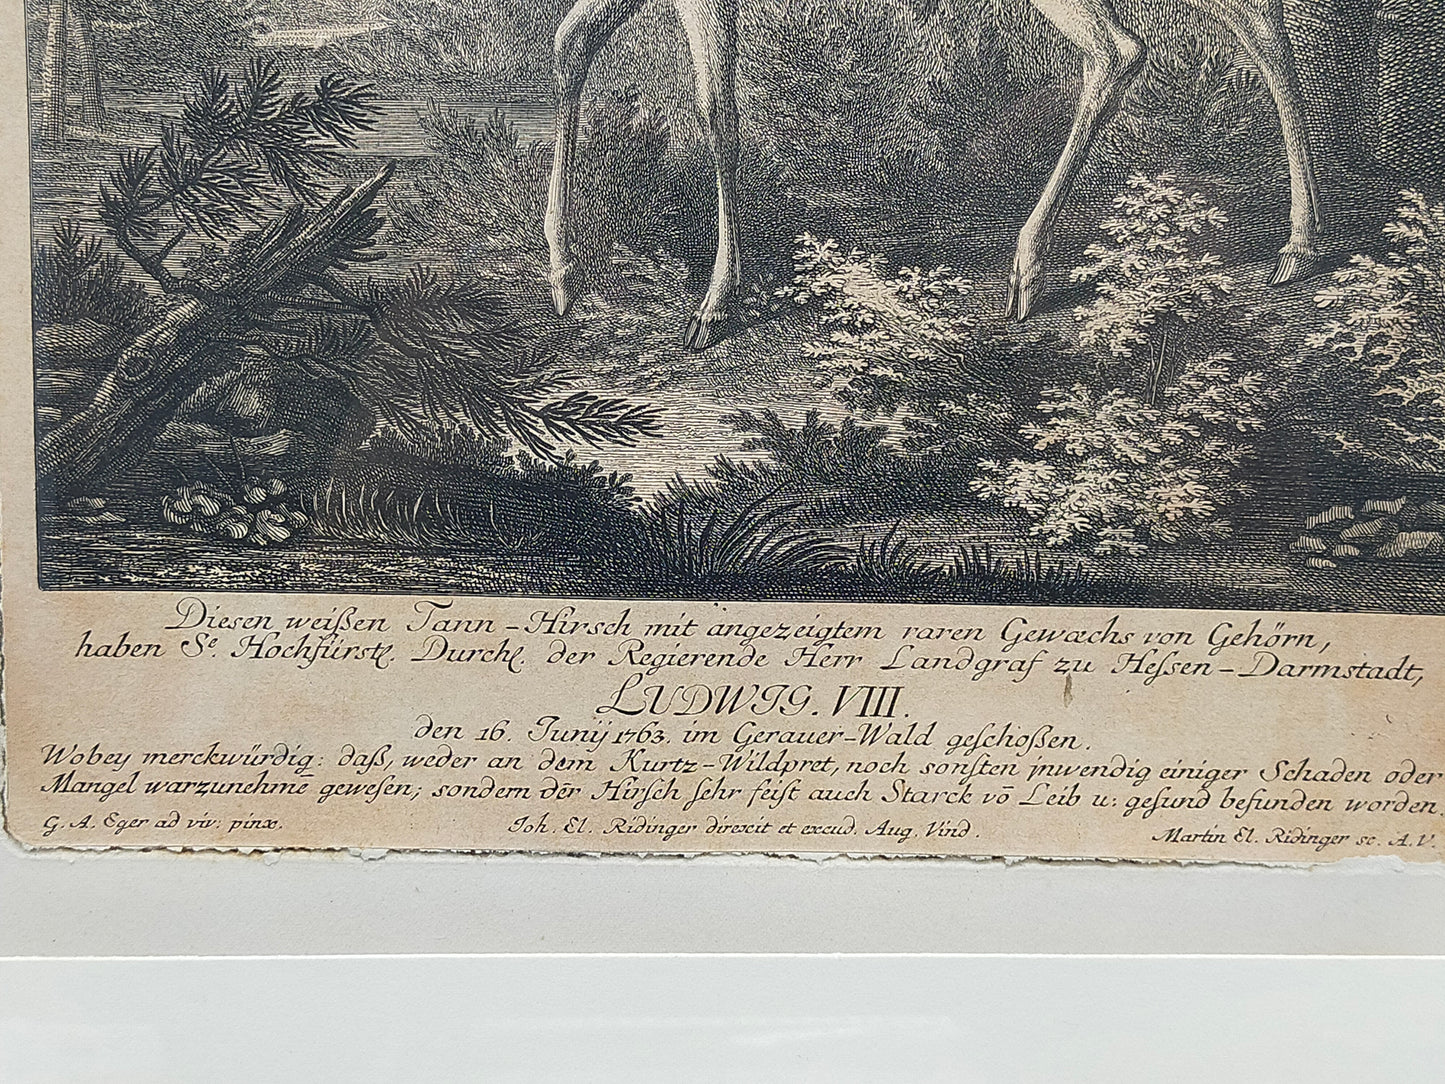 Diesen weißen Tann-Hirsch mit angezeigtem raren Gewæchs von Gehörn,
haben Se. Hochfürstl. Durchl. der Regierende Herr Landgraf zu Heſsen-Darmstadt,
LUDWIG. VIII.
den 16. Junÿ 1763. im Gerauer-Wald geſchoßen.
Wobey merckwürdig: daß, weder an dem̅ Kurtz-Wildpret, noch sonſten jnwendig einiger Schaden oder
Mangel warzunehme̅ geweſen; sondern der Hirſch ſehr feiſt auch Starck vo̅ Leib u: geſund befunden worden.
G. A. Eger ad viv: pinx.
Joh. El. Ridinger direxit et excud. Aug. Vind.
Martin El. Ridinger sc. A.V.